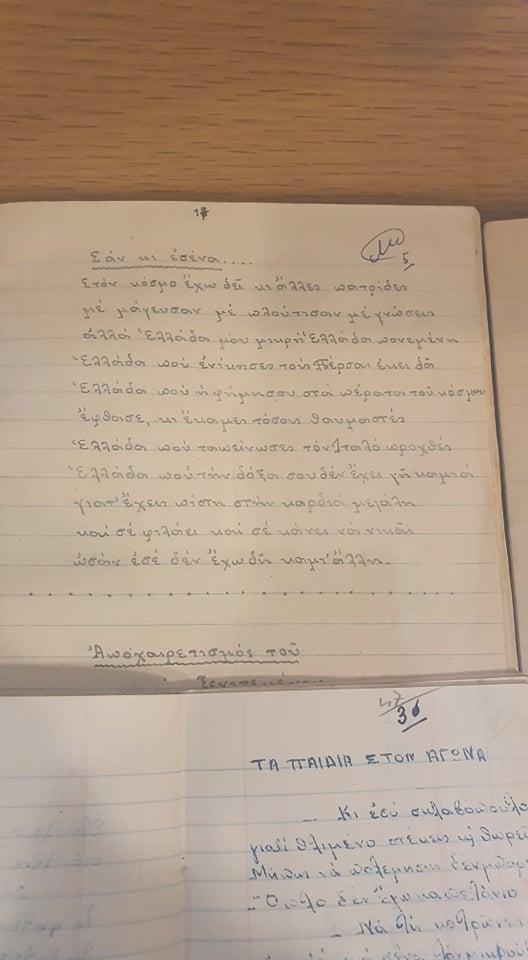 17
5
Σάν κι ἐσένα....
Στόν κόσμο ἔχω δεῖ κι ἄλλες πατρίδες
μέ μάγευσαν μέ πλούτισαν μέ γνώσεις
ἀλλά Ἑλλάδα μου μικρή Ἑλλάδα πονεμένη
Ἑλλάδα πού ἐνίκησες τούς Πέρσας ἐκεῖ δά
Ἑλλάδα πού ἡ φήμη σου στά πέρατα τοῦ κόσμου
ἔφθασε, κι ἔκαμες τόσους θαυμαστές
Ἑλλάδα πού ταπείνωσες τόν Ἰταλό προχθές
Ἑλλάδα πού τήν δόξα σου δέν ἔχει γῆ καμιά
γιατ' ἔχεις πίστη στήν καρδιά μεγάλη
καί σέ φιλάει καί σέ κάνει νά νικᾶς
ὡσάν ἐσέ δέν ἔχω δῆ καμι' ἄλλη.
Ἀποχαιρετισμός τοῦ
36
ΤΑ ΠΑΙΔΙΑ ΣΤΟΝ ΑΓΩΝΑ
– Κι ἐσύ σκλαβόπουλο
γιατί θλιμένο στέκεις κι θωρεῖ
Μήπως νά πολεμήσης δέν μπορ
– Ὄπλο δέν ἔχω καπετάνιο
– Νά